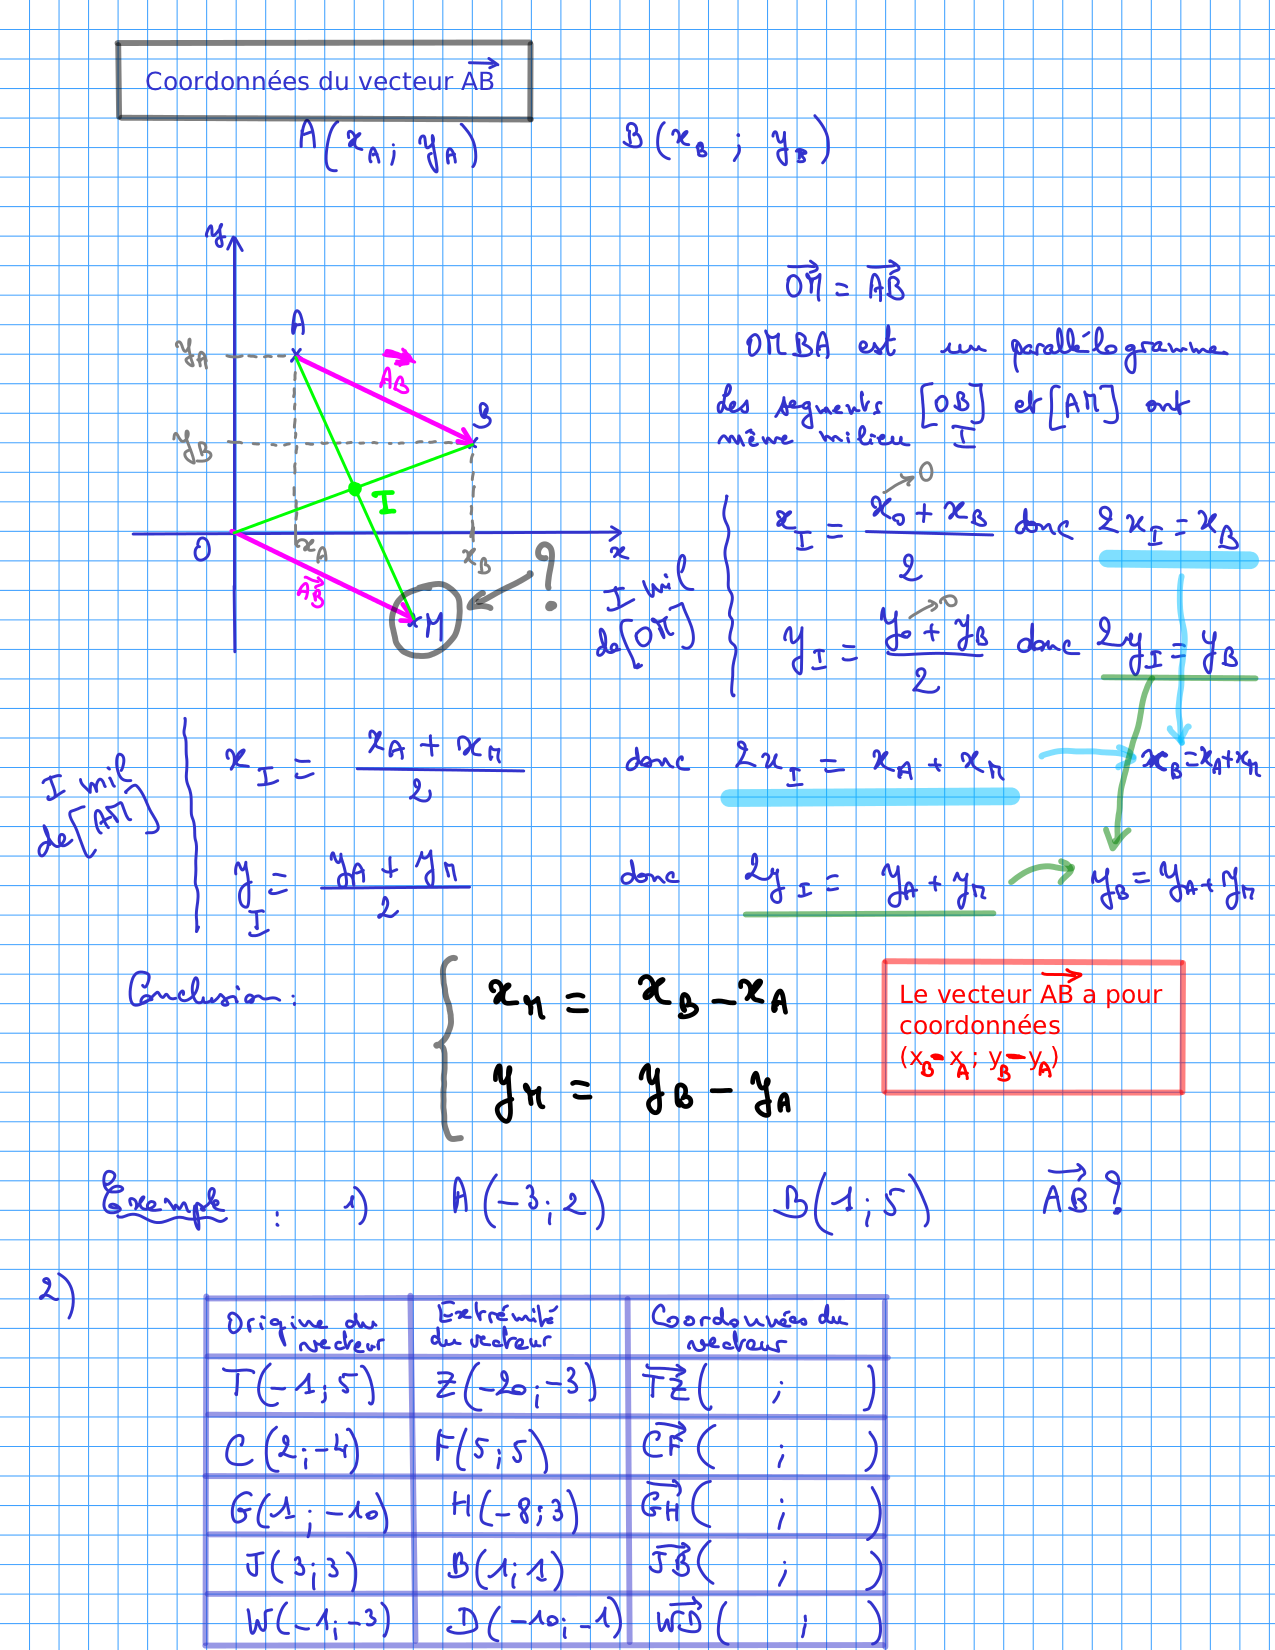 Coordonnées du vecteur AB
A(xA; yA) B(xB ; yB)
y
A
yA
AB
B
yB
I
O
xA
xB
x
AB
M
?
OM = AB
OMBA est un parallélogramme
Les segments [OB] et [AM] ont
même milieu I
I mil
de [OM]
xI = (xO + xB)/2 donc 2xI = xB
0
yI = (yO + yB)/2 donc 2yI = yB
0
I mil
de [AM]
xI = (xA + xM)/2 donc 2xI = xA + xM xB = xA + xM
yI = (yA + yM)/2 donc 2yI = yA + yM yB = yA + yM
Conclusion :
xM = xB - xA
yM = yB - yA
Le vecteur AB a pour
coordonnées
(xB - xA ; yB - yA)
Exemple : 1) A(-3;2) B(1;5) AB ?
2)
Origine du vecteur Extrémité du vecteur Coordonnées du vecteur
T(-1;5) Z(-20;-3) TZ( ; )
C(2;-4) F(5;5) CF( ; )
G(1;-10) H(-8;3) GH( ; )
J(3;3) B(1;1) JB( ; )
W(-1;-3) D(-10;-1) WD( ; )